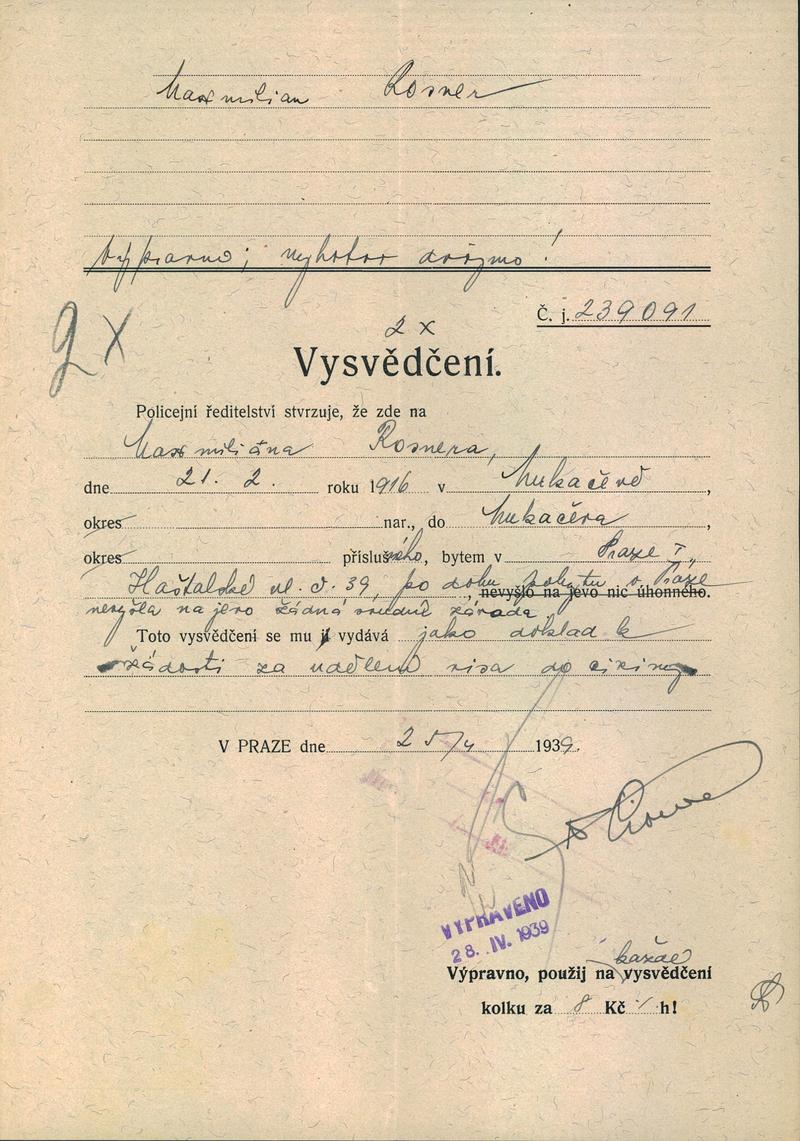 Maxmilian Rosner
Výpravno; vyhotov dvojmo!
Č. j. 239091
2 x
2 x
Vysvědčení.
Policejní ředitelství stvrzuje, že zde na
Maxmiliána Rosnera,
dne 21. 2. roku 1916 v Mukačevě,
okres nar., do Mukačeva,
okres příslušného, bytem v Praze I.,
Haštalské ul. č. 39, po dobu pobytu v Praze, nevyšlo na jevo nic úhonného.
nevyšla na jevo žádná soudně závada.
Toto vysvědčení se mu jí vydává jako doklad k
žádosti za udělení visa do ciziny
V PRAZE dne 25/4 1939.
VYPRAVENO
28. IV. 1939
každé
Výpravno, použij na vysvědčení
kolku za 8 Kč h!